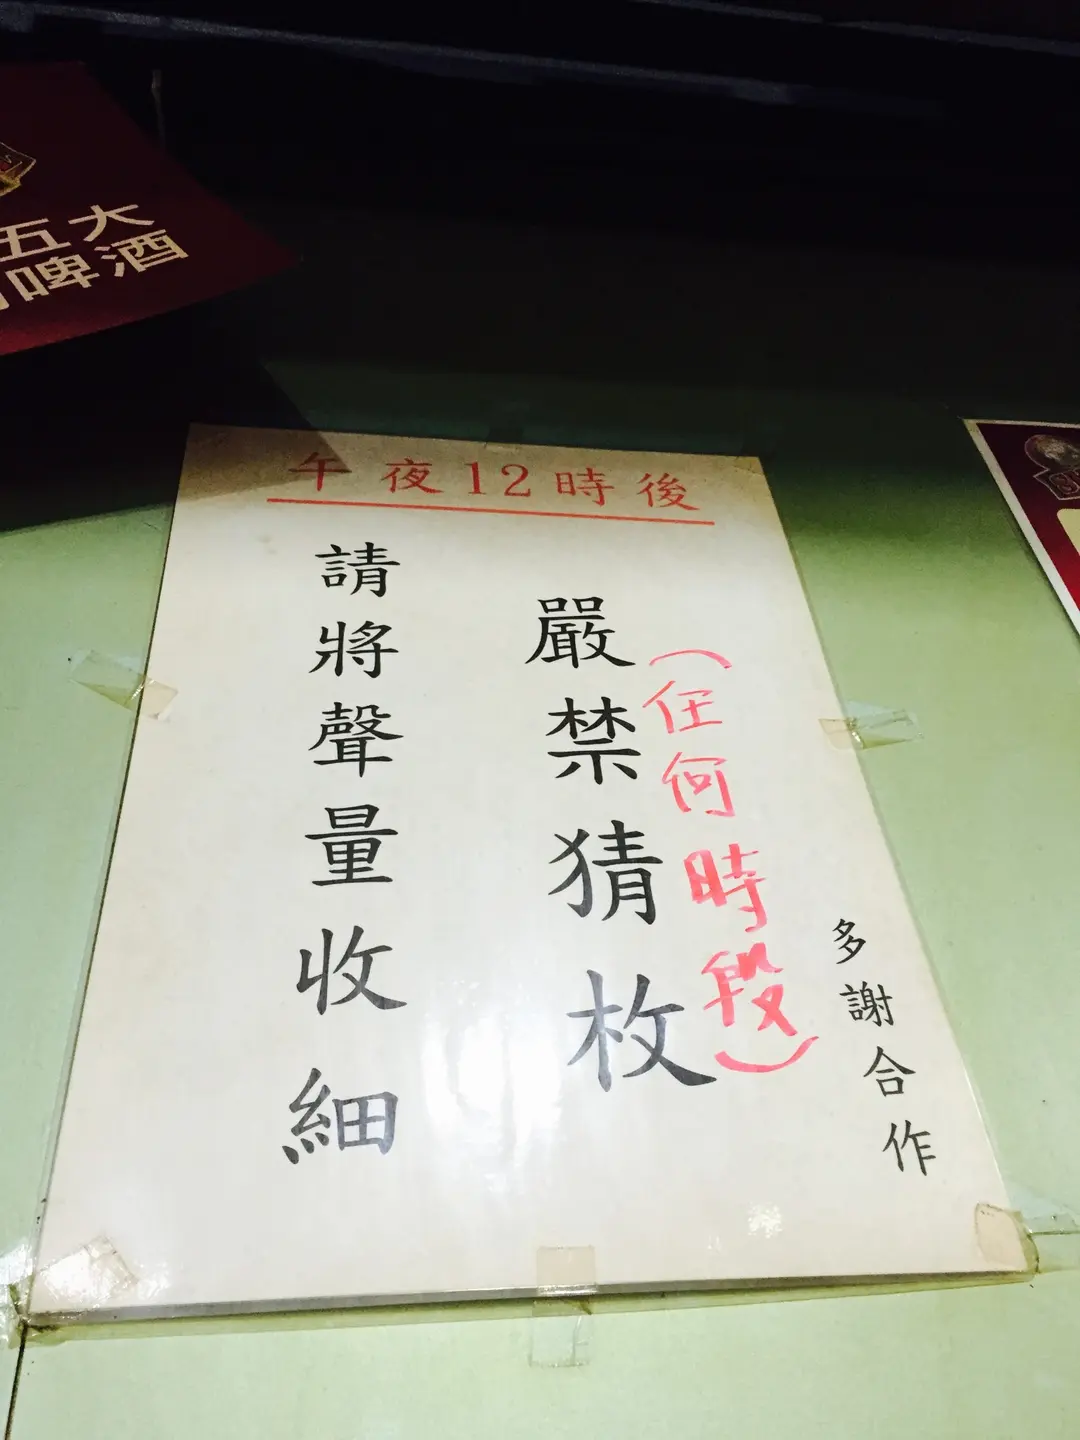 五大
啤酒
午夜12時後
請將聲量收細
嚴禁猜枚
（任何時段）
多謝合作